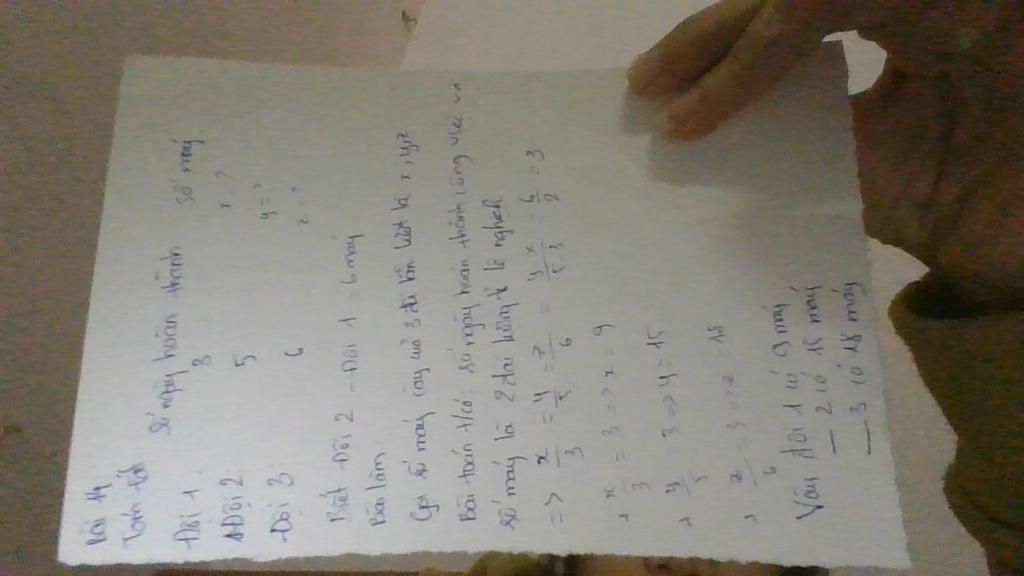 Bài 14
Tóm tắt
Số ngày hoàn thành Số máy
Đội 1: 3 x = ?
Đội 2: 5 y = ?
Đội 3: 6 z = ?
Biết Đội 2 - Đội 1 = 6 máy
Bài làm
Gọi số máy cày của 3 đội lần lượt là x, y, z
Bài toán t/có: số ngày hoàn thành công việc và
số máy là 2 đại lượng tỉ lệ nghịch
=> x/3 = y/5 = z/6 = y-x/5-3 = 6/2 = 3
+ x/3 = 3 => x = 9
+ y/5 = 3 => y = 15
+ z/6 = 3 => z = 18
Vậy đội 1 có 9 máy
— 2 có 15 máy
— 3 có 18 máy